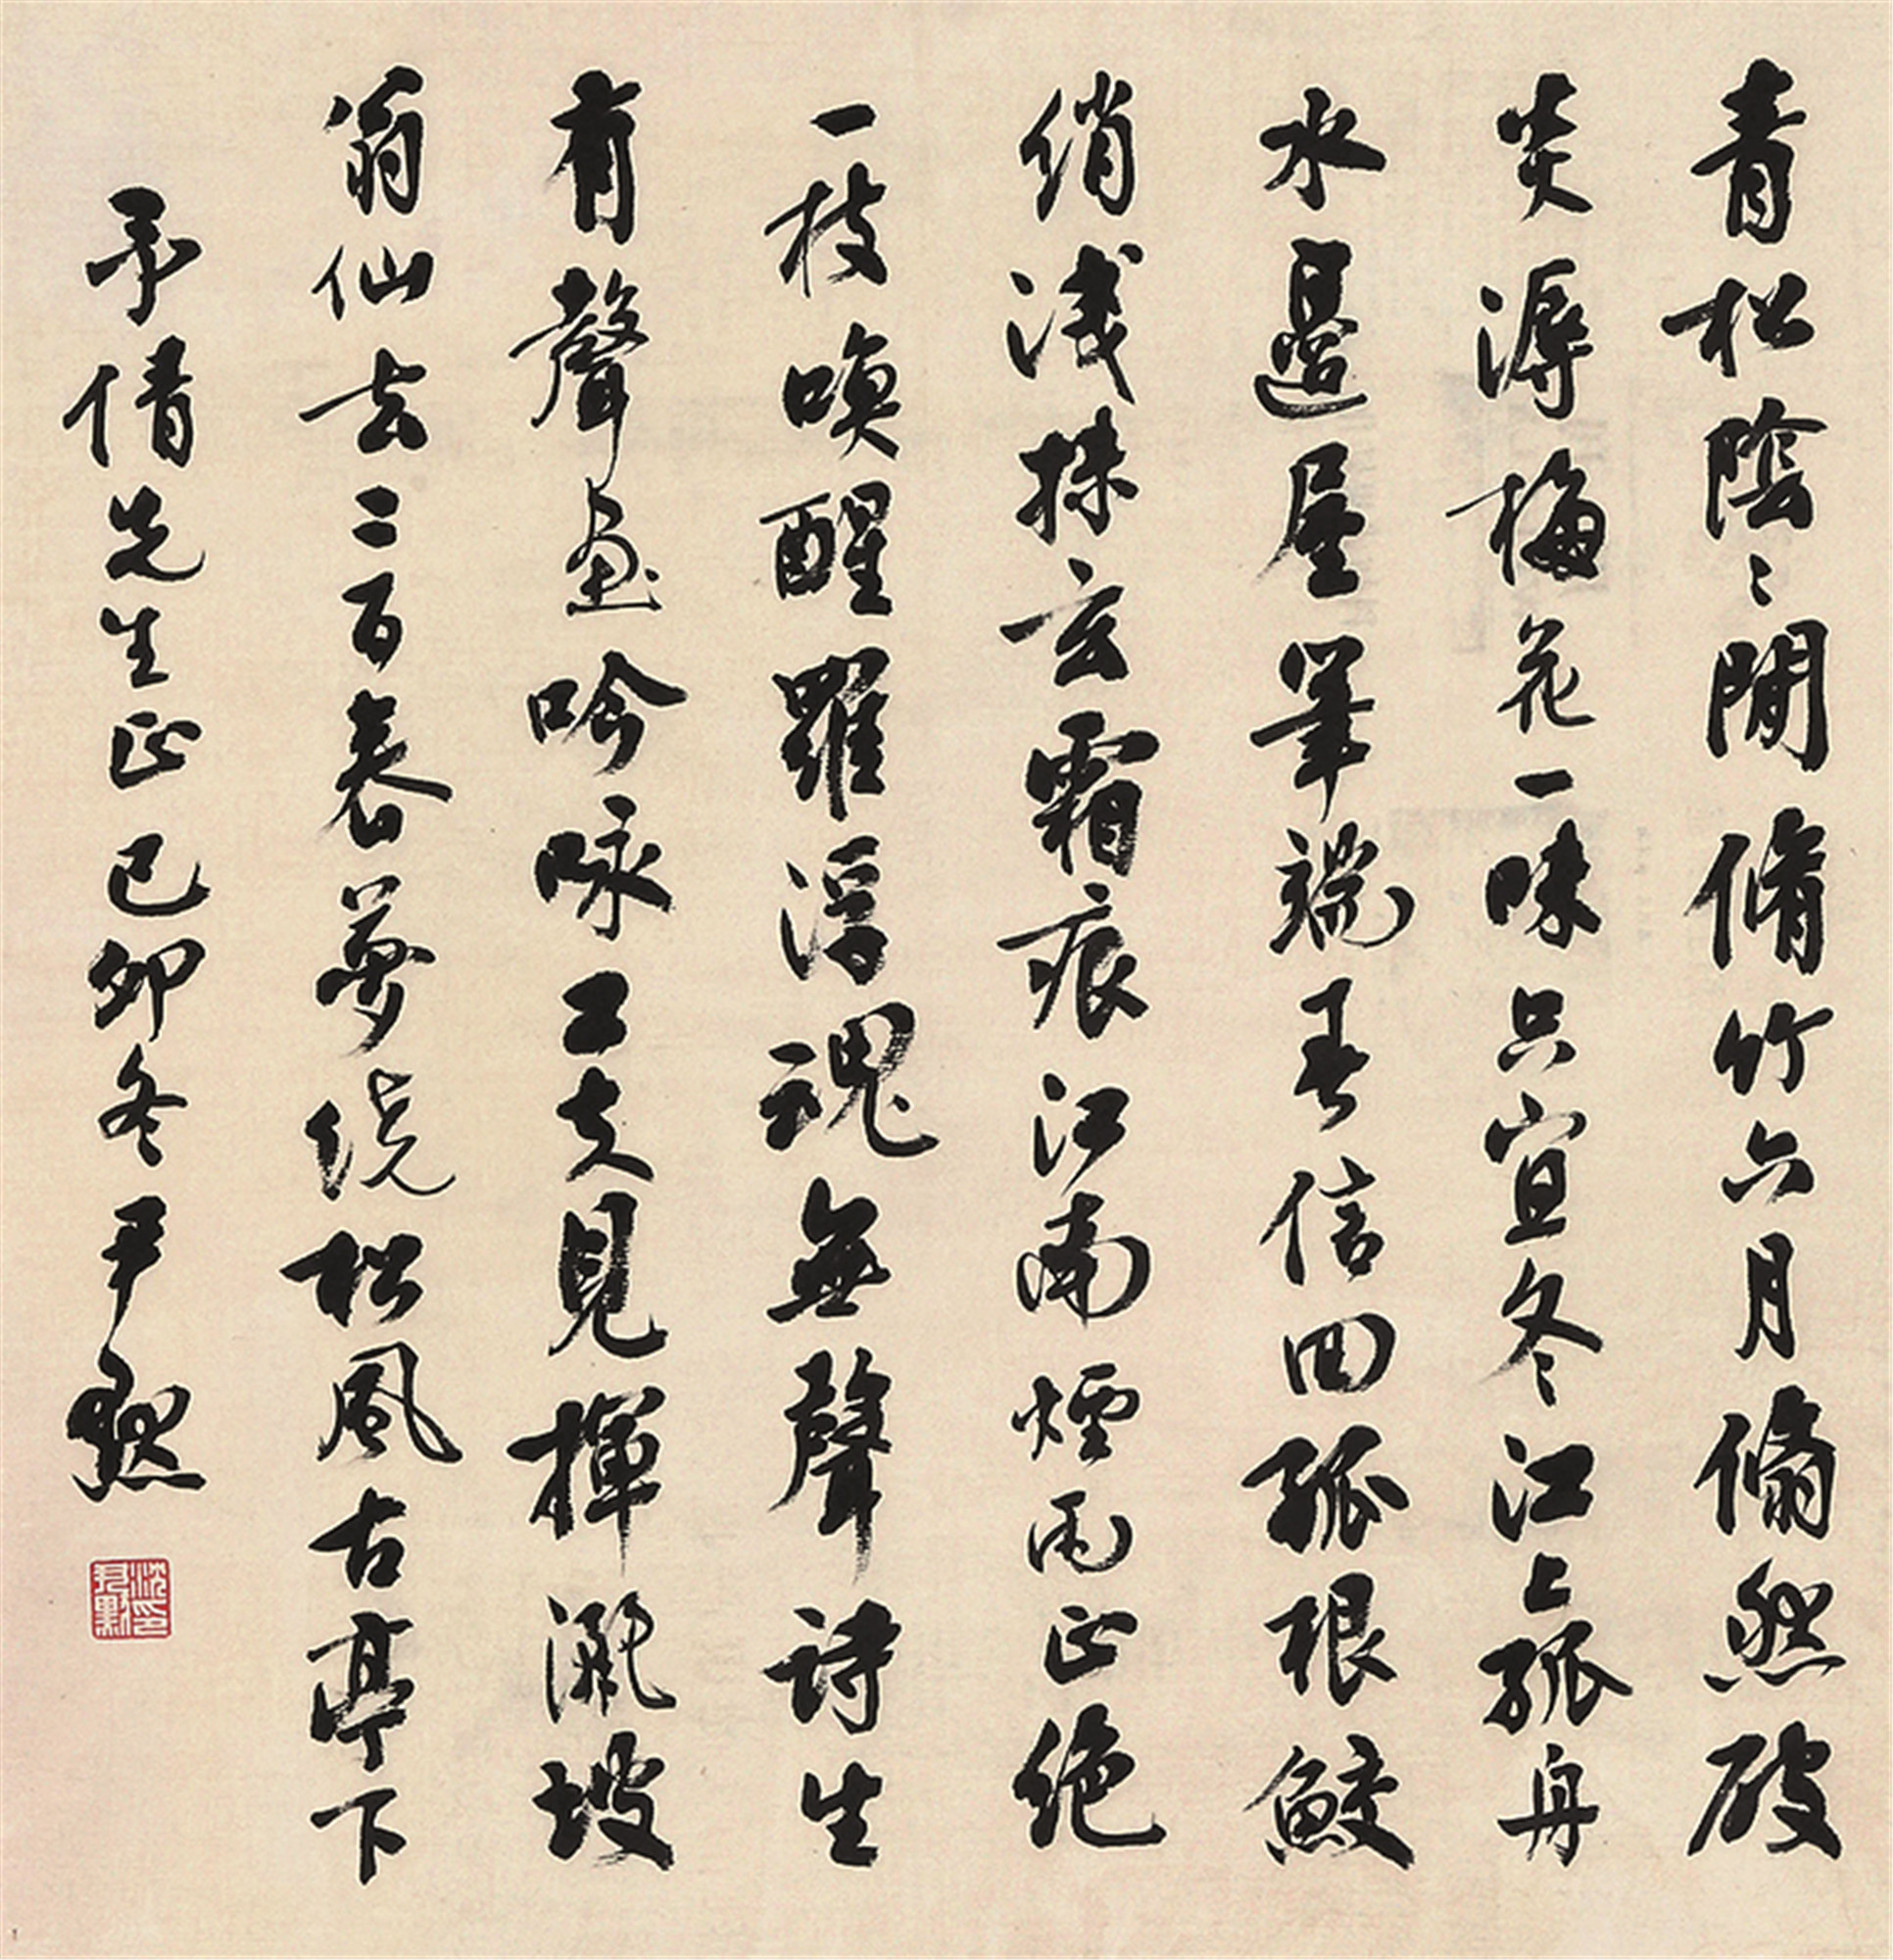 青松陰〻閒脩竹六月翛然破
炎溽梅花一味只宜冬江上孤舟
水邊屋筆端春信回孤根鮫
綃淺抹玄霜痕江南煙雨正絕
一枝喚醒羅浮魂無聲詩生
有聲畫吟咏工夫見揮灑坡
翁仙去二百春夢繞松風古亭下
承倩先生正己卯冬尹默
沈尹默印